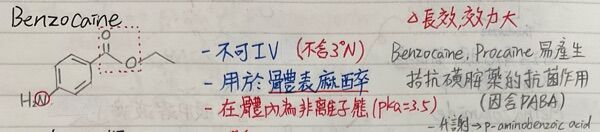 Benzocaine
△長效,效力大
O
O
H₂N
- 不可IV (不含3°N)
- 用於體表麻醉
- 在體內為非離子態(pka=3.5)
Benzocaine, Procaine 易產生
拮抗磺胺藥的抗菌作用
(因含PABA)
- 代謝→p-aminobenzoic acid